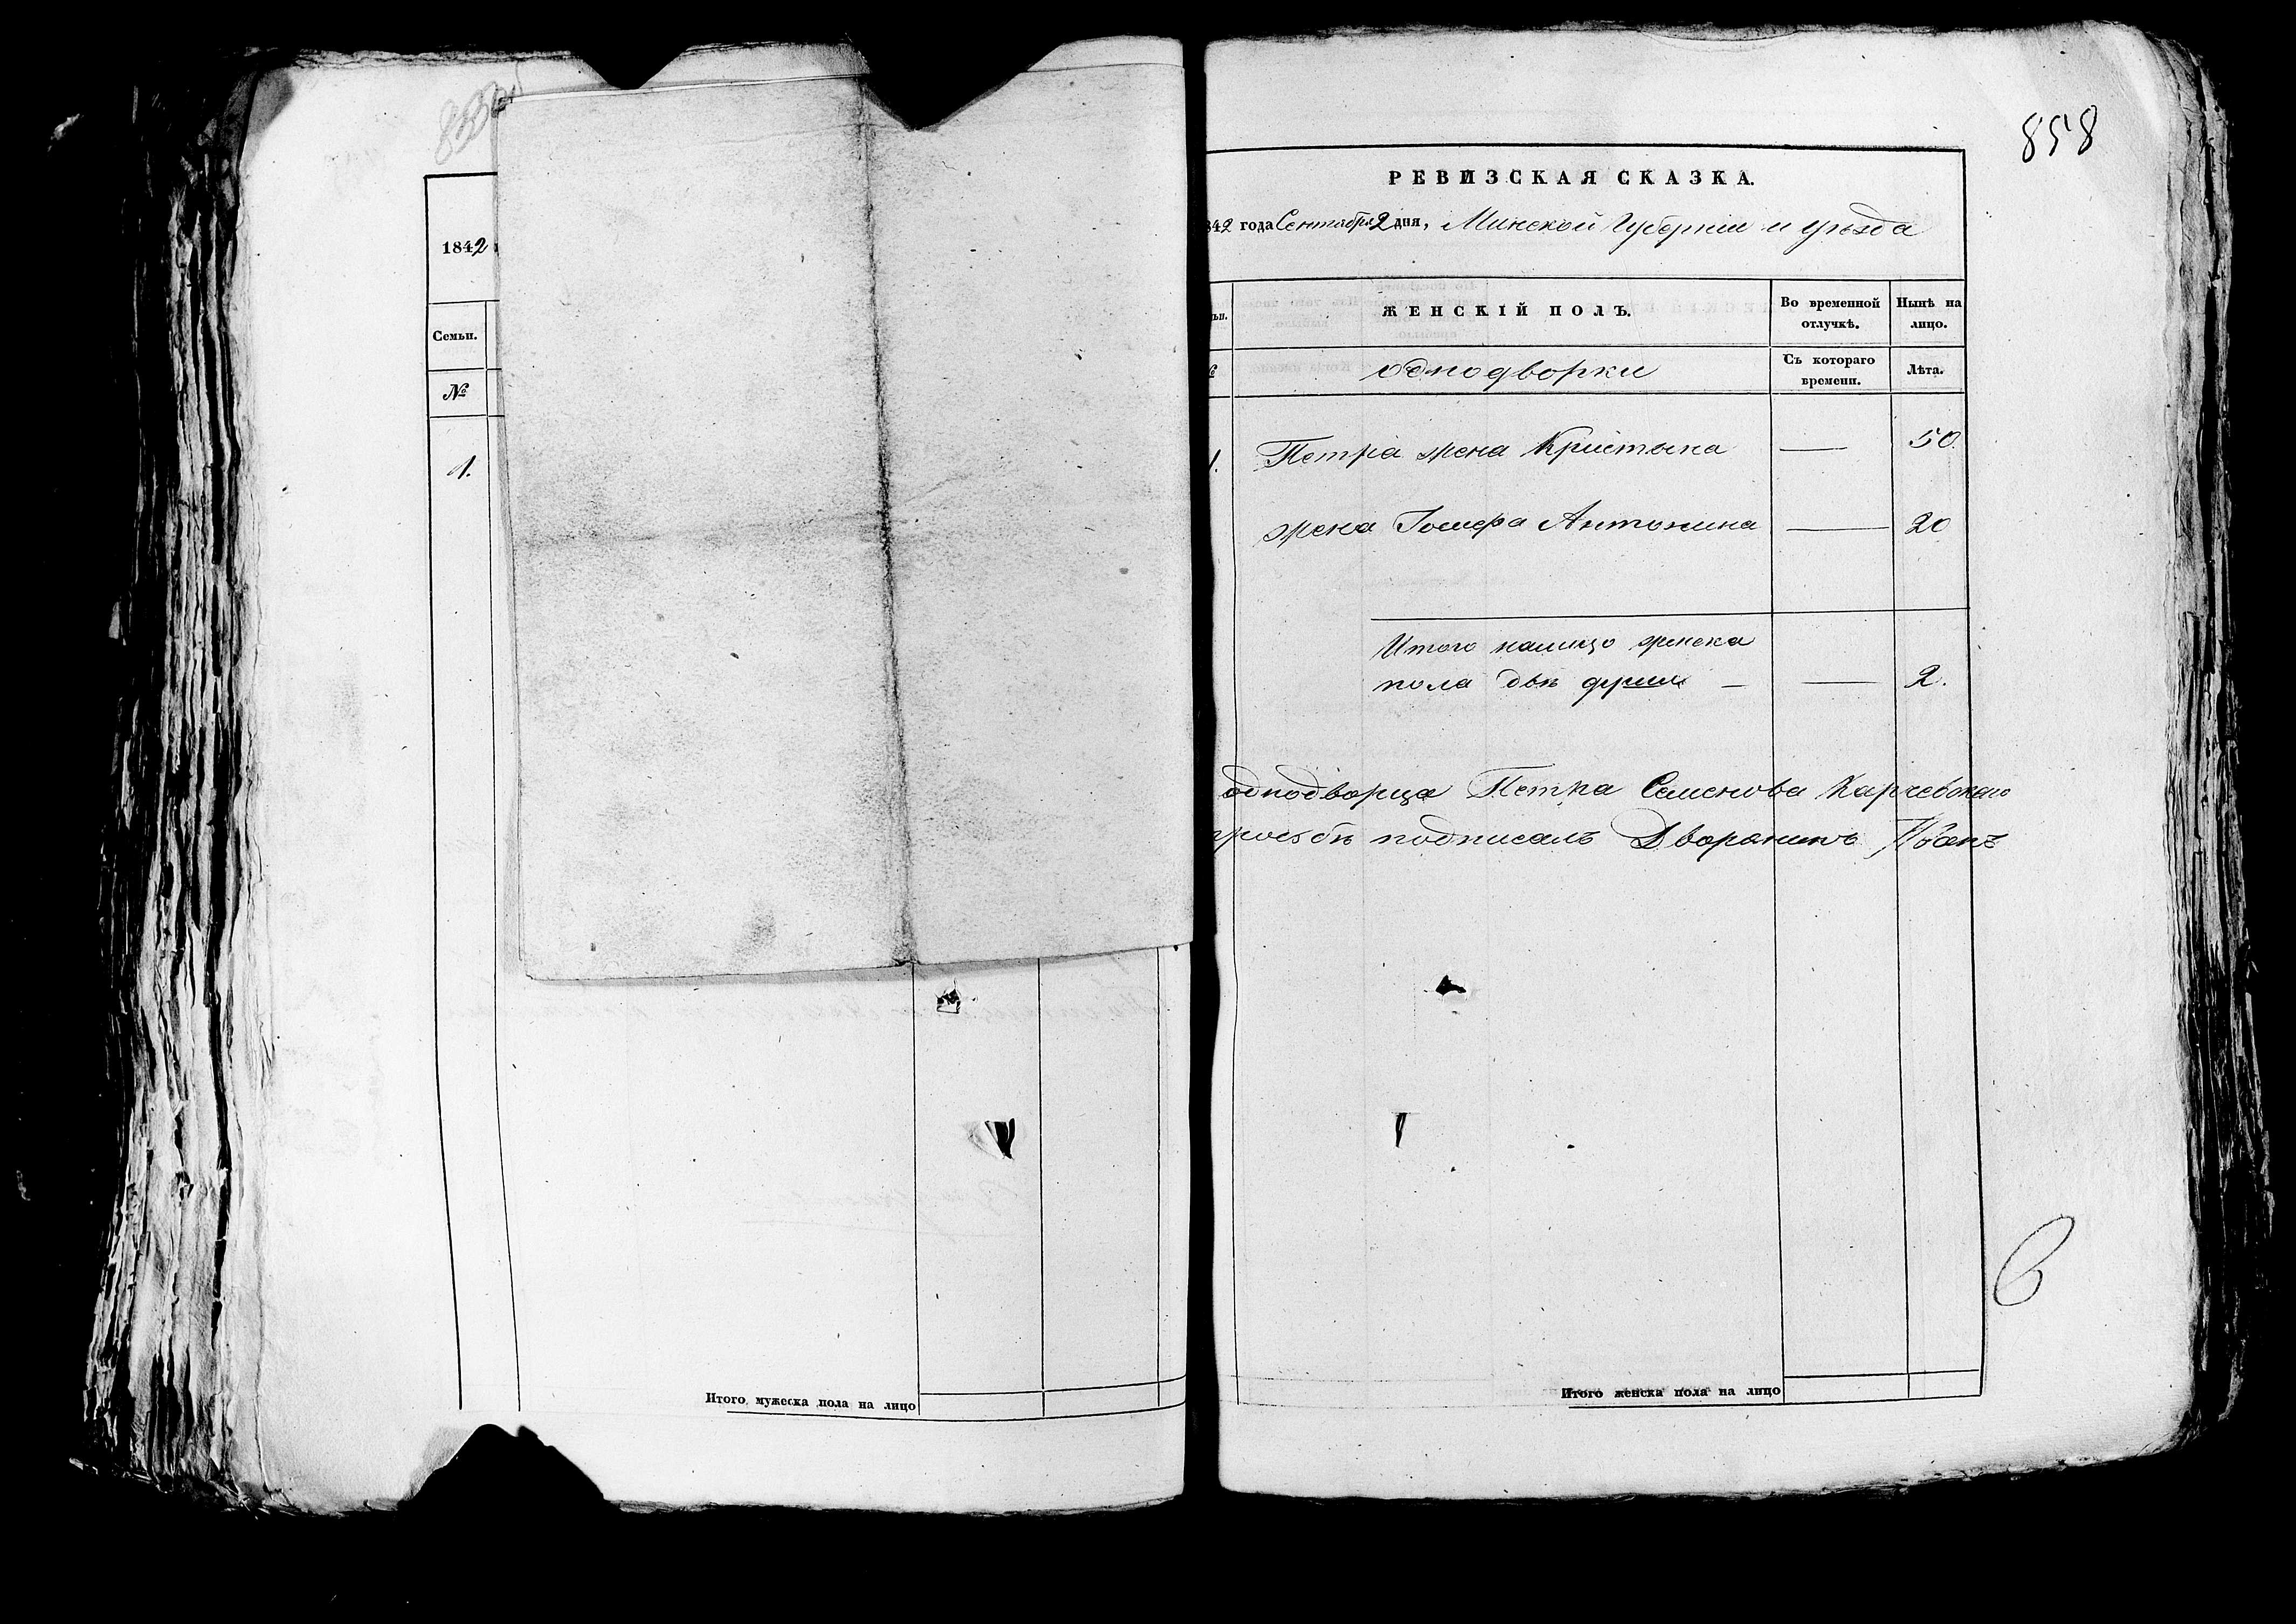 1842
Семьи.
№
1.
Итого мужеска пола на лицо
858
РЕВИЗСКАЯ СКАЗКА.
842 года Сентября 2 дня, Минской Губерніи и уѣзда
ЖЕНСКІЙ ПОЛЪ.
Во временной отлучкѣ.
Нынѣ на лицо.
однодворки
Съ котораго времени.
Лѣта.
1. Петра жена Кристына — 50.
жена Іосифа Антонина — 20
Итого налицо женска
пола двѣ души — — 2.
однодворца Петра Семенова Карчевскаго
прозбѣ подписалъ Дворянинъ Иванъ
Итого женска пола на лицо